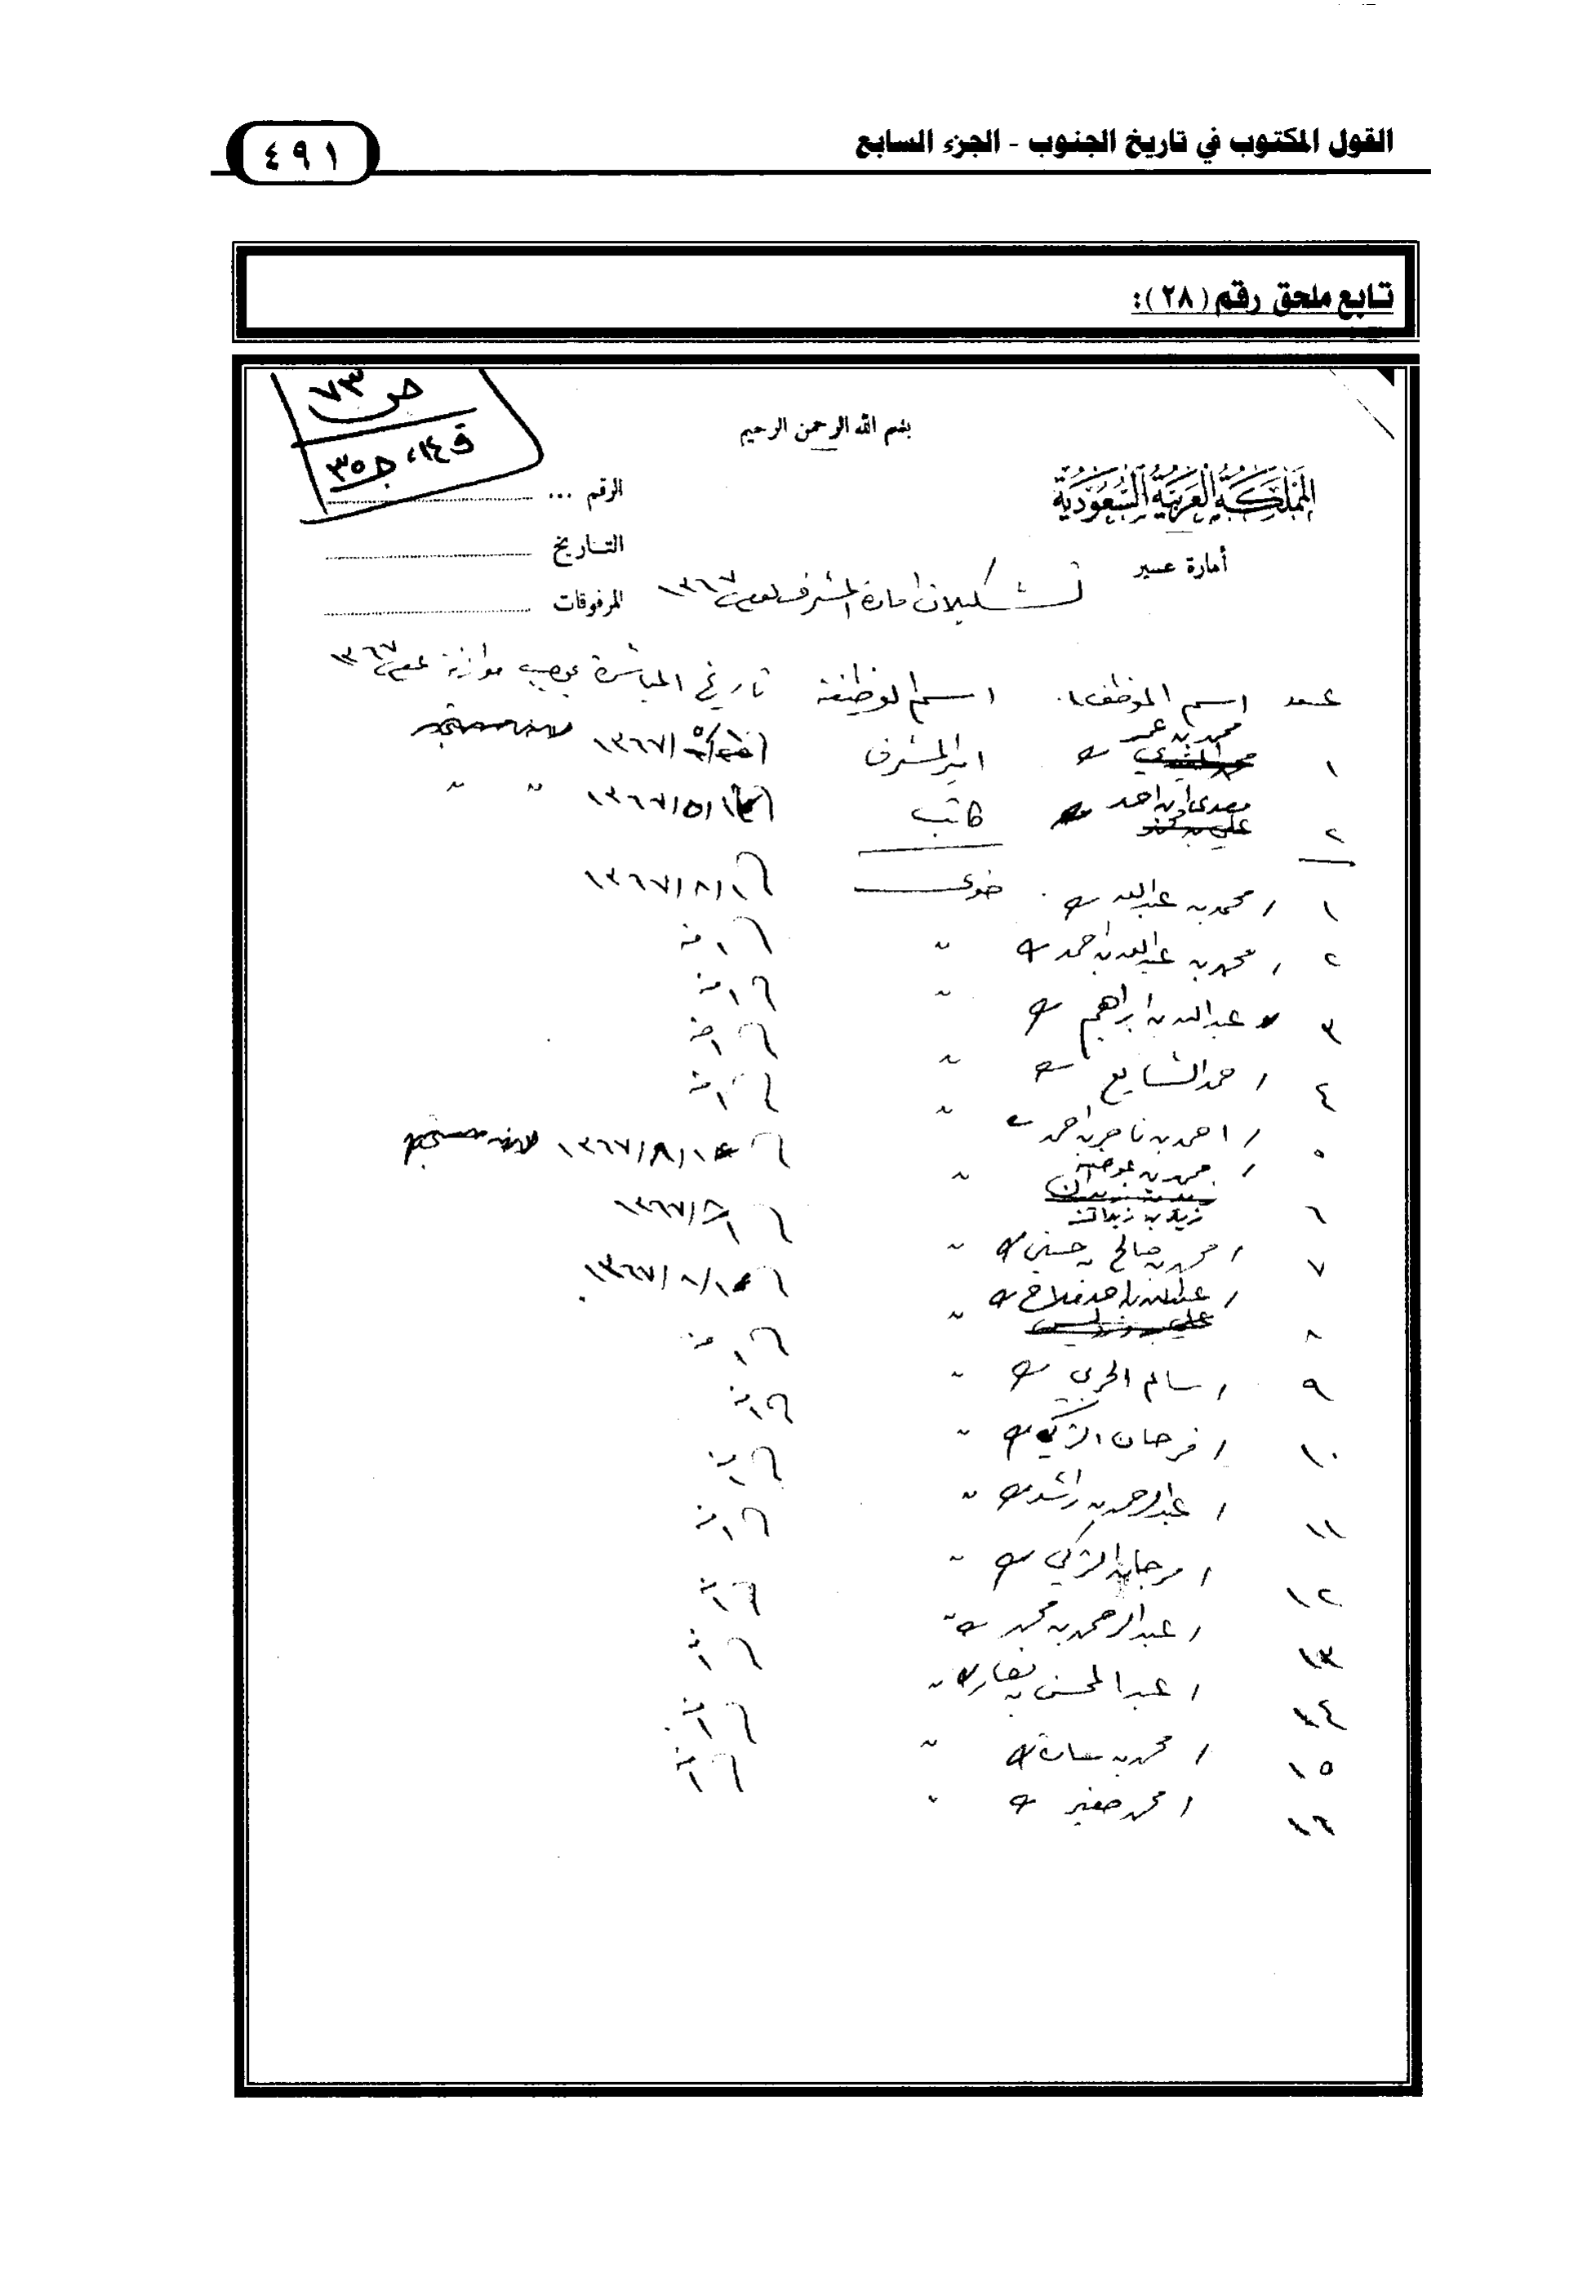 القول المكتوب في تاريخ الجنوب - الجزء السابع
٤٩١
تابع ملحق رقم (٢٨):
ص ٧٣
ق ١٤، ج ٣٥
بسم الله الرحمن الرحيم
المملكة العربية السعودية
أمارة عسير
الرقم ...
التاريخ
المرفوقات
تشكيلات امارة المشرف لعام ١٣٦٧
عدد اسم الموظف اسم الوظيفة تاريخ المباشرة بموجب موازنة عام ١٣٦٧
١ محمد بن عمر امير المشرف ١٣٦٧
٢ بن احمد كاتب ١٣٦٧/٥/ " "
١ / محمد بن عبدالله خوى ١٣٦٧/٨/١
٢ / محمد بن عبدالله بن احمد " ١ منه
٣ عبدالله بن ابراهيم " ١ منه
٤ / حمد الشايع " ١ منه
٥ / احمد بن ناصر بن احمد " ١ منه
٦ / محمد بن " ١٣٦٧/٨/١٤
زيد بن زيدان
٧ / محمد بن صالح بن حسين " ١٣٦٧/٨/١
٨ / بن احمد فلاح " ١٣٦٧/٨/١٤
٩ / سالم الحربي " ١ منه
١٠ / فرحان التركي " ١ منه
١١ / عبدالرحمن بن راشد " ١ منه
١٢ / مرجان التركي " ١ منه
١٣ / عبدالرحمن بن محمد " ١ منه
١٤ / عبدالمحسن بن " ١ منه
١٥ / محمد بن " ١ منه
١٦ / محمد صغير " ١ منه